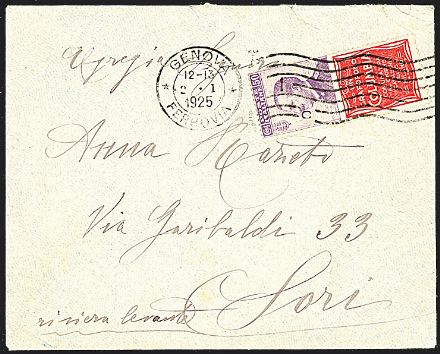 GENOVA
12-13
2 · 1
1925
FERROVIA
Egregia
Anna
Via Garibaldi 33
Sori
riviera levante